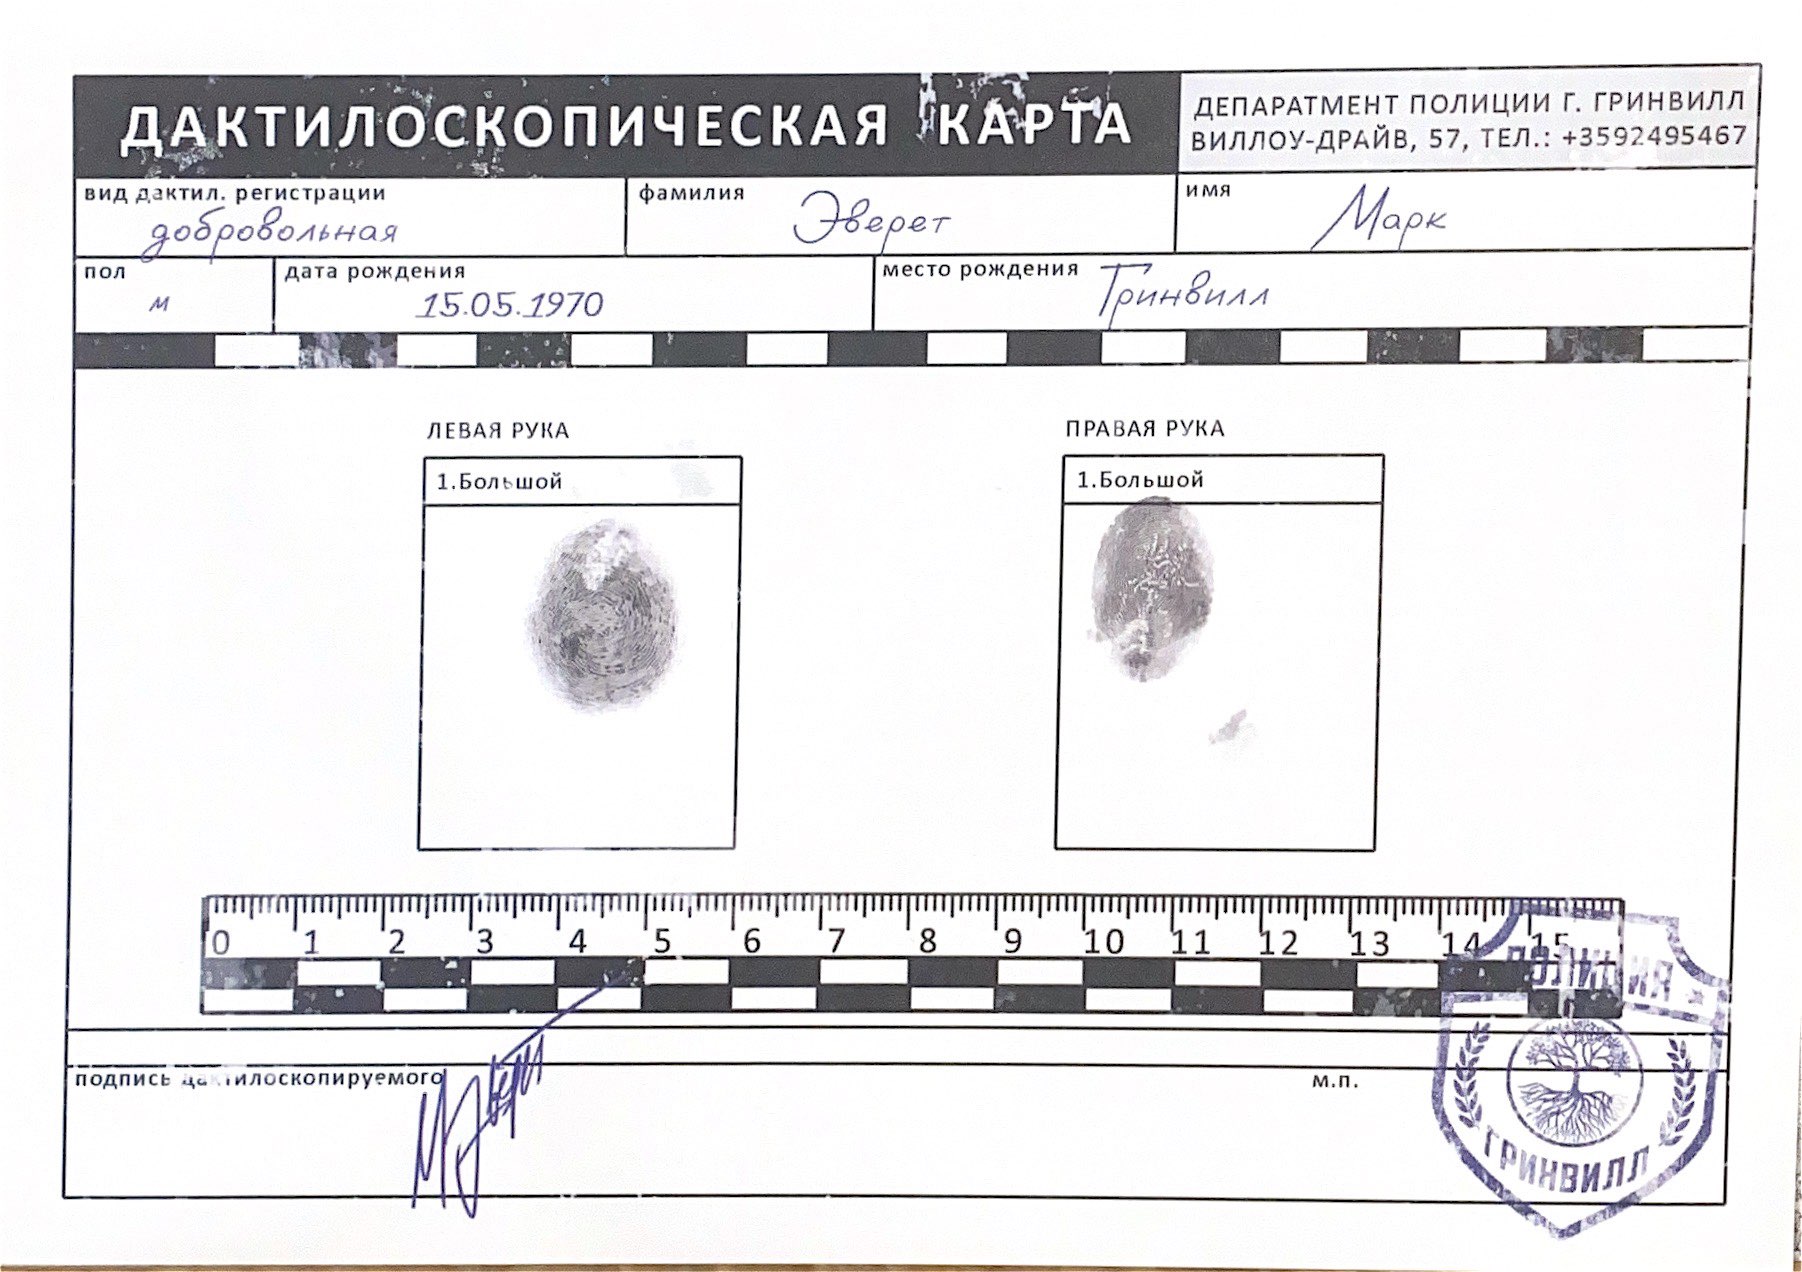 ДАКТИЛОСКОПИЧЕСКАЯ КАРТА
ДЕПАРАТМЕНТ ПОЛИЦИИ Г. ГРИНВИЛЛ
ВИЛЛОУ-ДРАЙВ, 57, ТЕЛ.: +3592495467
вид дактил. регистрации
добровольная
фамилия
Эверет
имя
Марк
пол
м
дата рождения
15.05.1970
место рождения
Гринвилл
ЛЕВАЯ РУКА
1.Большой
ПРАВАЯ РУКА
1.Большой
0 1 2 3 4 5 6 7 8 9 10 11 12 13 14 15
подпись дактилоскопируемого
м.п.
ПОЛИЦИЯ
ГРИНВИЛЛ